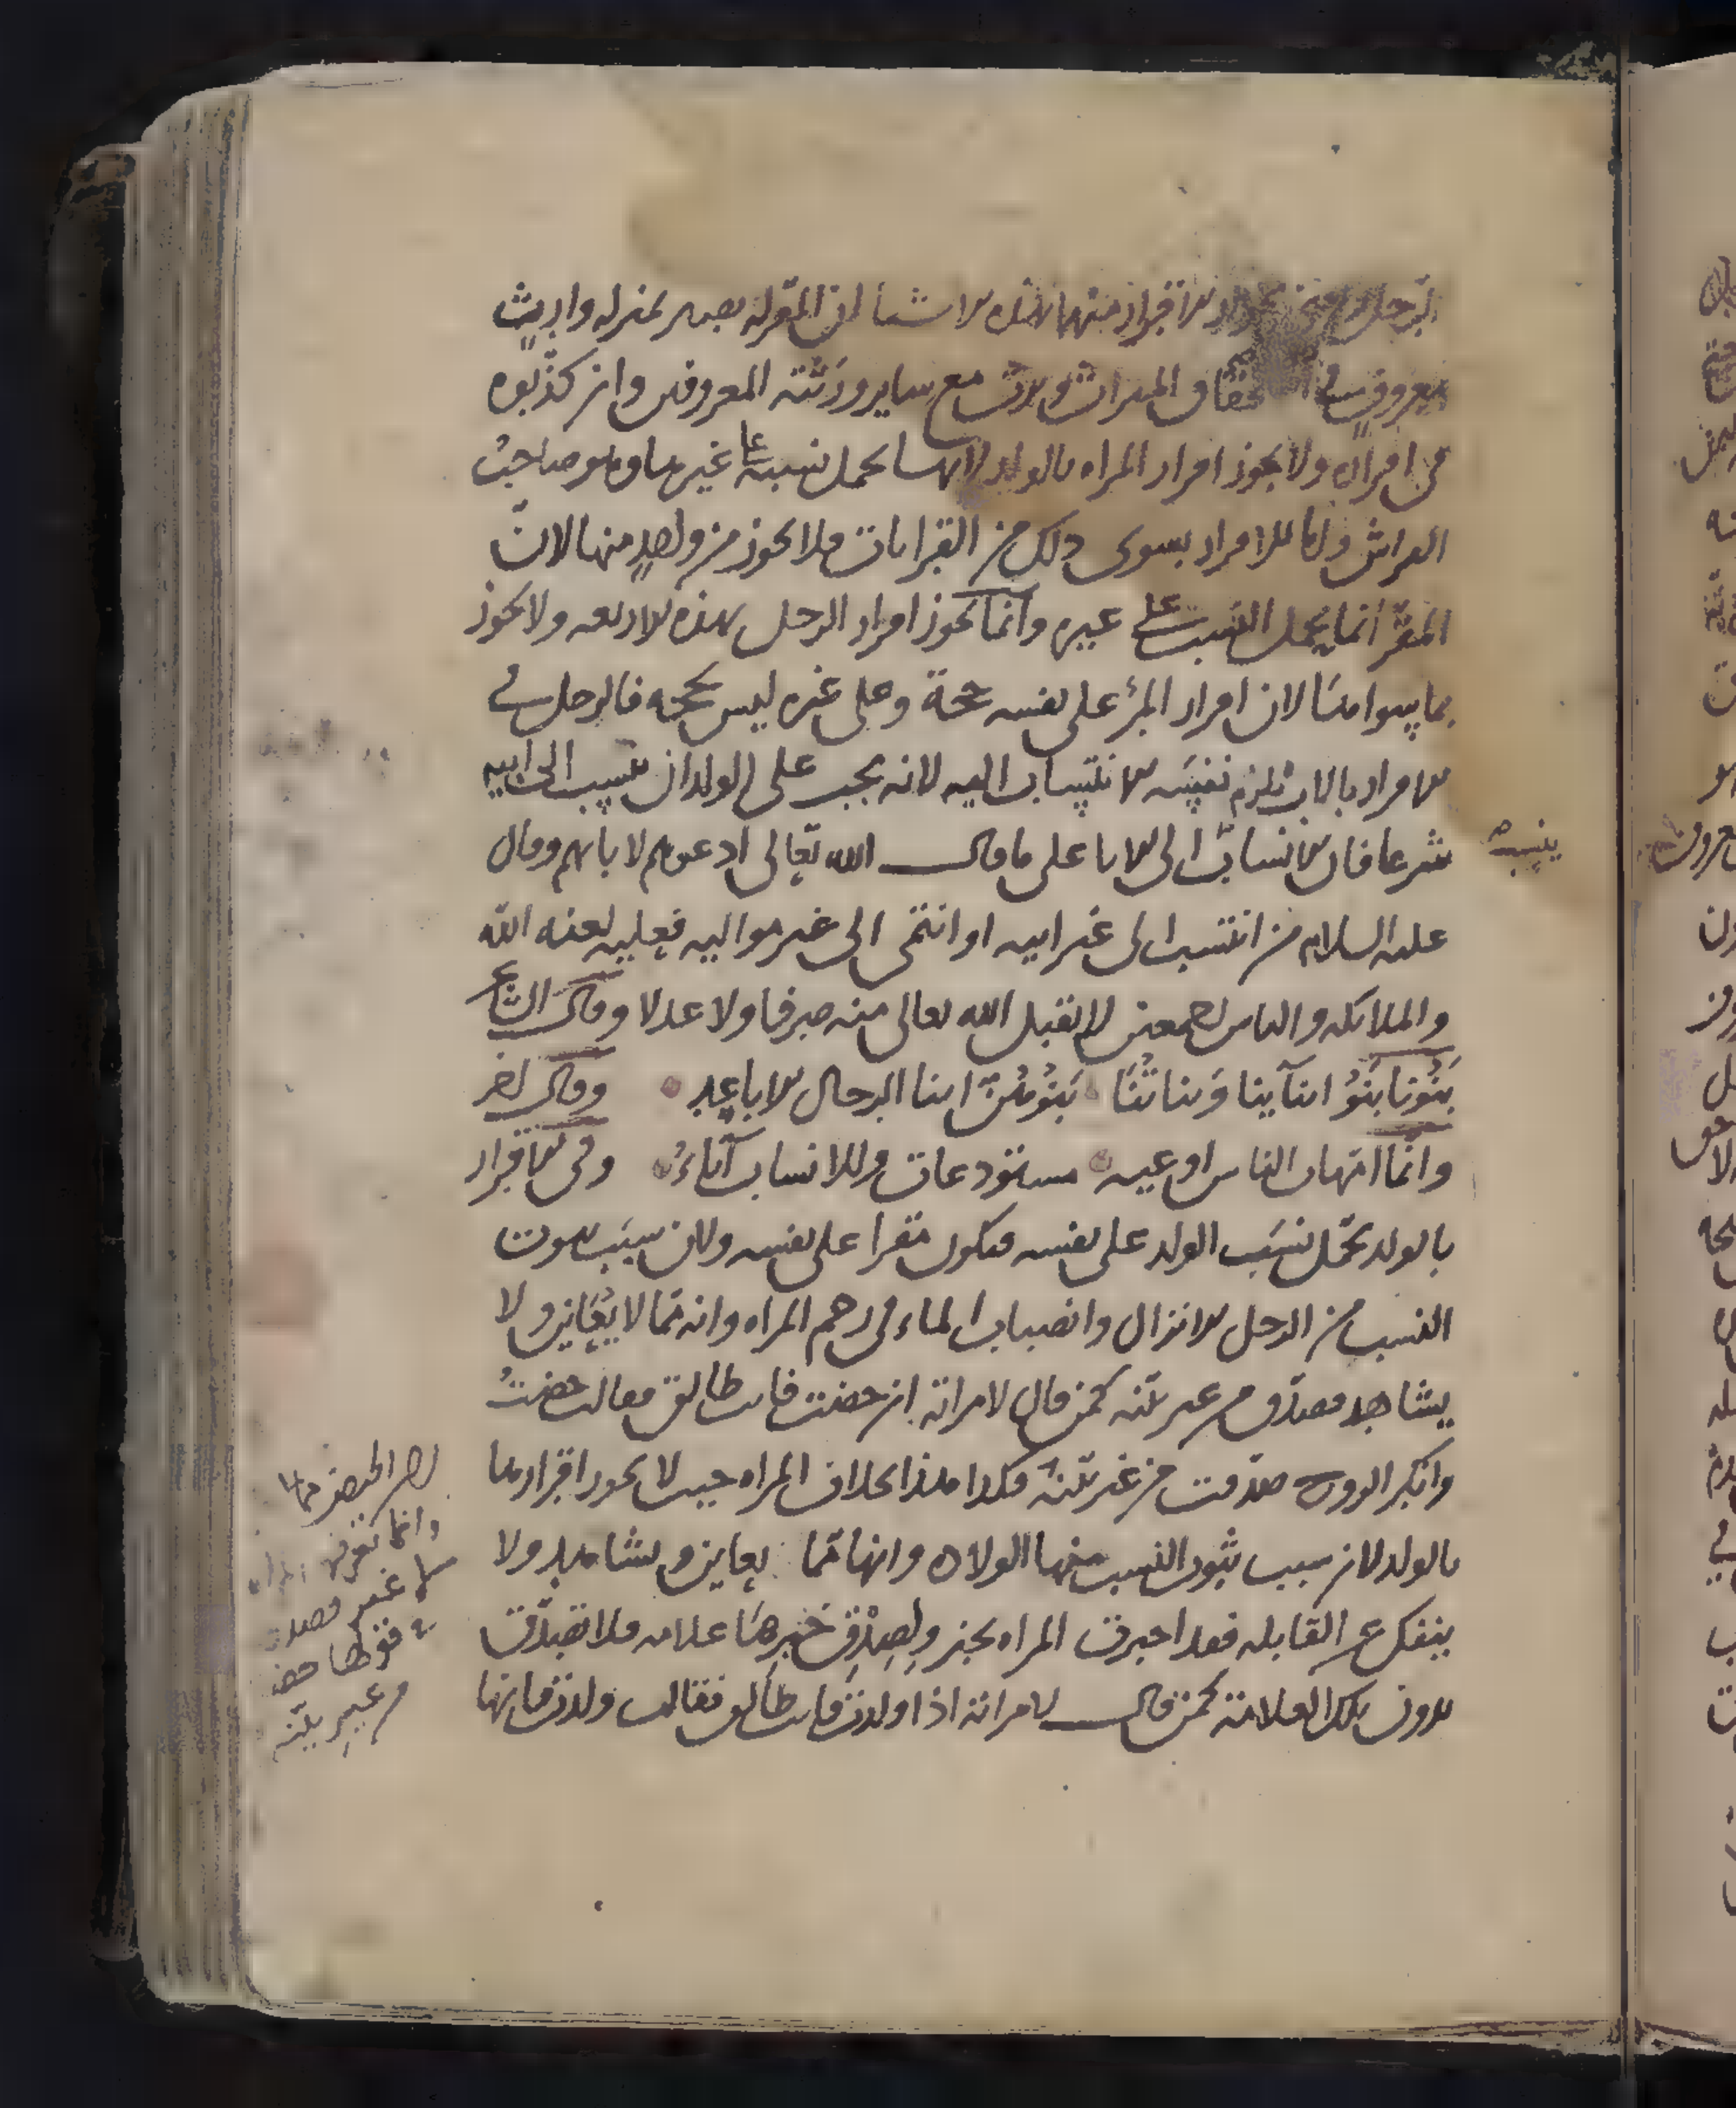 الرجل ومعنى جواز الاقرار منهما بهذه الاشيا ان المقر له يصير بمنزلة وارث
معروف في استحقاق الميراث ويرث مع ساير ورثته المعروفين وان كذبوه
في اقراره ولا يجوز اقرار المراه بالولد لانها تحمل نسبه على غيرها وهو صاحب
الفراش واما الاقرار بسوى ذلك من القرابات فلا يجوز من واحد منهما لان
المقر انما يحمل النسب على غيره وانما يجوز اقرار الرجل بهذه الاربعه ولا يجوز
بما سواها لان اقرار المرء على نفسه حجة وعلى غيره ليس بحجه فالرجل في
الاقرار بالاب يلزم نفسه الانتساب اليه لانه يجب على الولد ان ينسب الى ابيه
شرعا فان الانساب الى الابا على ما قال الله تعالى ادعوهم لابائهم وقال
عليه السلام من انتسب الى غير ابيه او انتمى الى غير مواليه فعليه لعنه الله
والملائكه والناس اجمعين لا يقبل الله تعالى منه صرفا ولا عدلا وقال الشاعر
بَنُونا بَنُو ابنآينا وَبناتُنَا بَنُوهُنّ ابنا الرجال الاباعد وقال اخر
وانما امهات الناس اوعيه مستودعات وللانساب آباءُ وفي الاقرار
بالولد تحمّل نسَب الولد على نفسه فيكون مقرا على نفسه ولان سبَب ثبوت
النسب من الرجل الانزال وانصباب الماء في رحم المراه وانه مما لا يُعَاين ولا
يشاهد فصدّق من غير بيّنه كمن قال لامراته ان حضت فانت طالق فقالت حضتُ
وانكر الزوج صدّقت من غير بيّنه فكذا هذا بخلاف المراه حيث لا يجوز اقرارها
بالولد لان سبب ثبوت النسب منها الولاده وانها مما يعاين ويشاهد ولا
ينفك عن القابله فقد اخبرت المراه بخبر ولِصِدْقِ خَبرِهَا علامه فلا تصدّق
بدون تلك العلامة كمن قال لامراته اذا ولدت فانت طالق فقالت ولدت فانها
ينسب صح
لان الحيض مما لا
وانما تعرفه المراه
لا غير فصدقت
في قولها حضت
من غير بيّنه